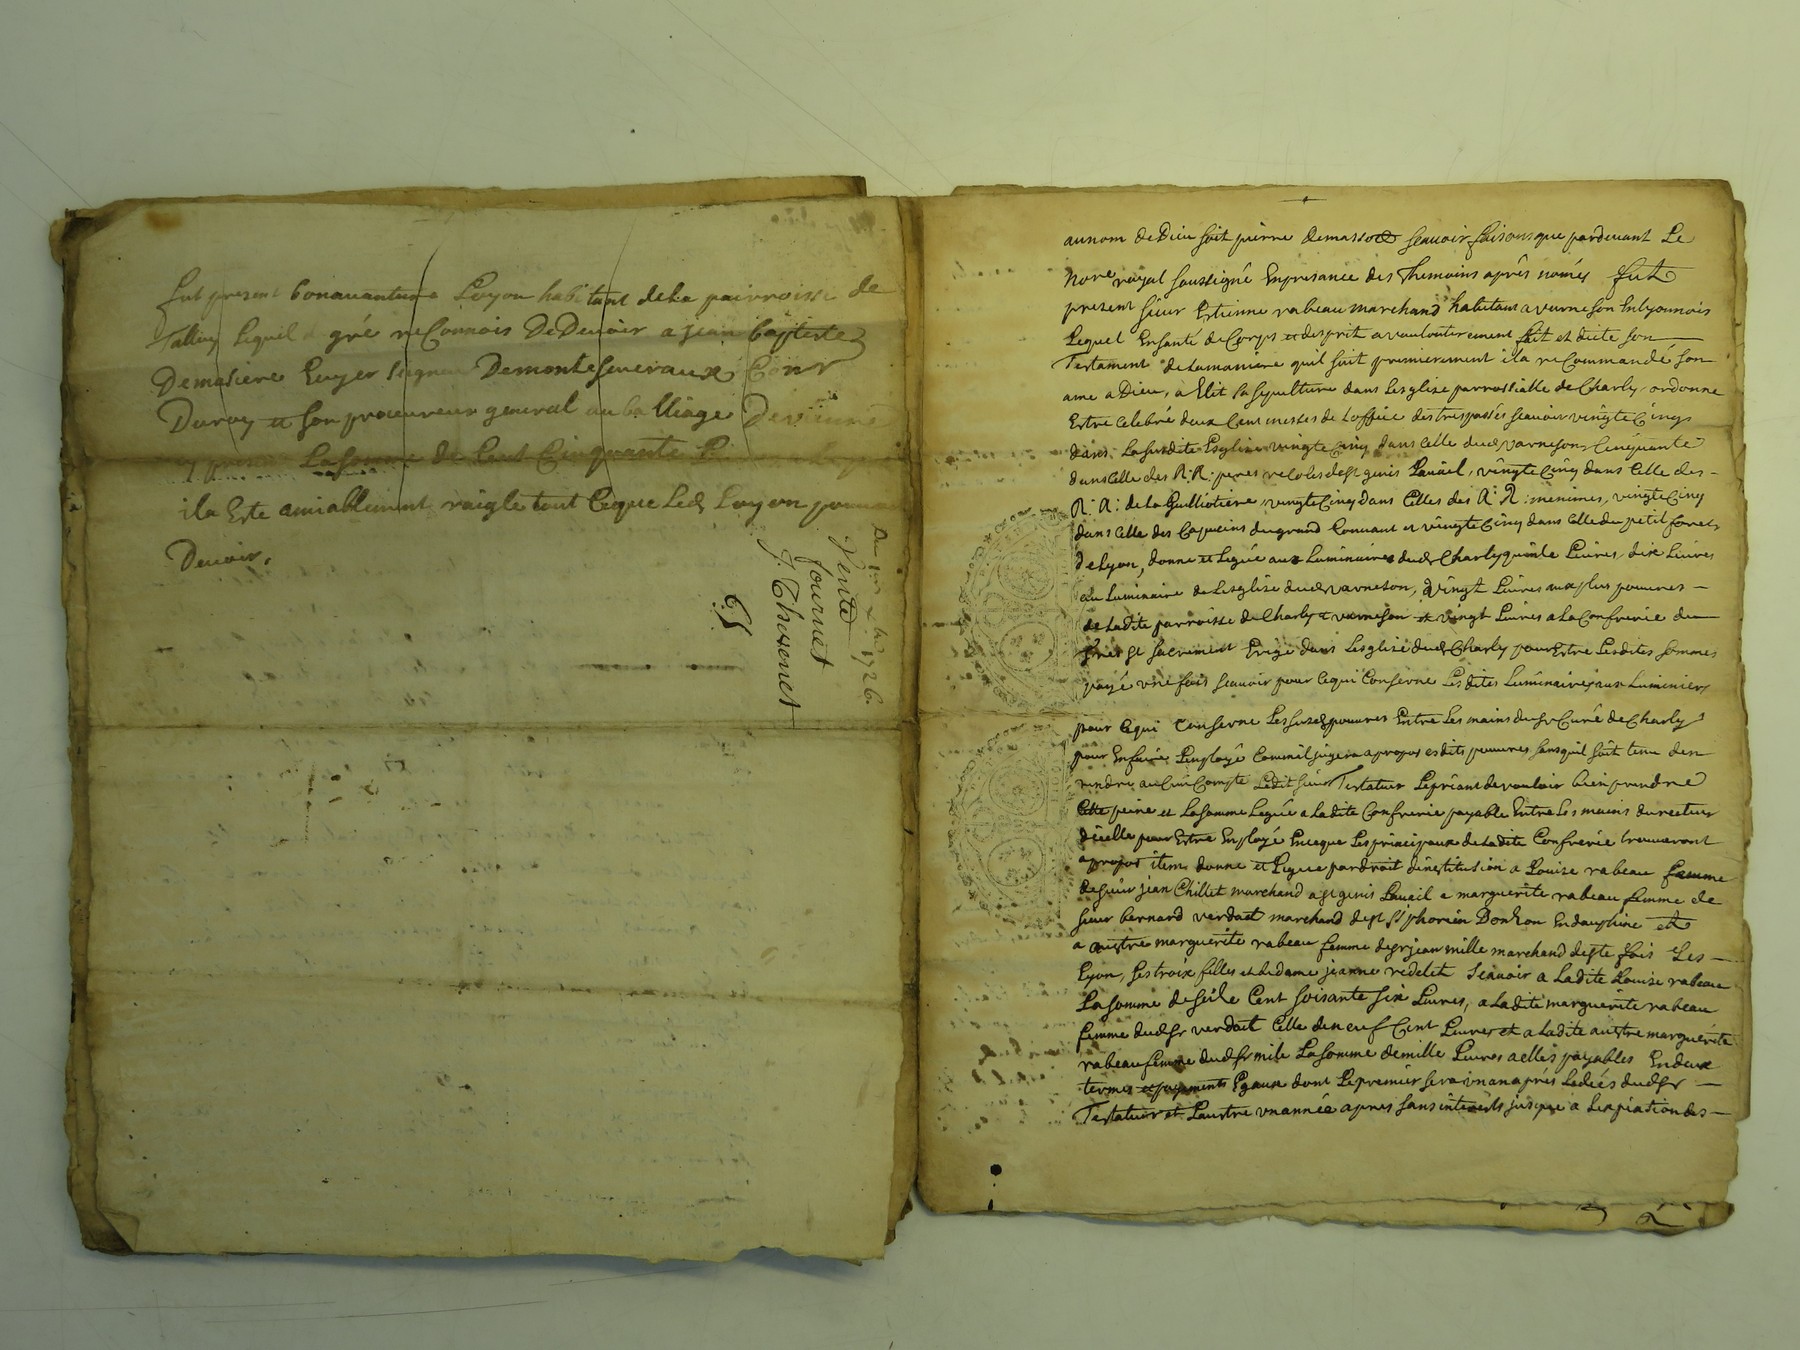 fut present bonauanture Loyon habitant de la pairroisse de
lequel a gré reConnois De Devoir a jean baptiste
Demasiere Ecuyer segneu Demonteseueraux Cons
Duroy et son procureur general au balliage De vienne
La somme de Cent Cinquante
il a Este amiablement raigle tout Ceque Led Loyon pouuoi
Deuoir.
1726
Vente
fournet
J. Thevenet
65
au nom de Dieu soit scauoir faisons que pardeuant Le
Nore royal soussigné En presance des Themoins après només fut
present sieur Estienne rabeau marchand habitant a verneson En Lyonnois
Lequel En santé de Corps et desprit a vouloutairement fait et dicté son
Testament de La maniere quil suit premierement il a reCommandé son
ame a Dieu, a Elit sa sepulture dans Lesglise parrossialle de Charly, ordonne
Estre Celebré deux Cent messes de Loffice des trespassés scauoir vingte Cinq
dans La susdite Esglise vingte Cinq dans Celle dud varneson, Cinquante
dans Celle des R. R. peres recolés de st genis Laual, vingte Cinq dans Celle des
R. R: de la Guilliotiere vingte Cinq dans Celles des R. R: menimes, vingte Cinq
dans Celle des Capucins du grand Convant et vingte Cinq dans Celle du petit forets
de Lyon, donne et Legué aux Luminaires dud Charly quinze Liures, dix Liures
au Luminaire de Lesglise dud varneson, vingt Liures aux plus pouures
de Ladite parroisse de Charly et verneson et vingt Liures a La Confrerie du
tres st sacrement Erigé dans Lesglise dud Charly pour Estre Lesdites sommes
payé vne fois scauoir pour Cequi Conserne Lesdites Luminaires aux Luminiers
pour Cequi Conserne Les susd pouures Entre Les mains du sr Curé de Charly
pour En faire Lemployé Comm il jugera apropos esdits pouures sans quil soit tenu den
rendre auCun Compte Ledit sieur Testateur Le priant de vouloir bien prendre
Cette peine et La somme Leguée a Ladite Confrerie payable Entre Les mains du recteur
dicelle pour Estre Employé En ceque Les principaux de Ladite Confrerie trouueront
apropos item donne et Legue par droit dinstitution a Louise rabeau femme
de sieur jean Chillet marchand a st genis Laual a marguerite rabeau femme de
sieur bernard verdait marchand de st siphorien Donzon En dauphine et
a austre marguerite rabeau femme de sr jean mille marchand de ste fois Les
Lyon, ses troix filles et de dame jeanne redelet scauoir a Ladite Louise rabeau
La somme de Cent soisante six Liures, a Ladite marguerite rabeau
femme dud sr verdait Celle de neuf Cent Liures et a Ladite austre marguerite
rabeau femme dud sr mile La somme de mille Liures a elles payables En deux
termes et payements Egaux dont Le premier sera vn an après Le diés dud sr
Testateur et Laustre vn année apres sans interests jusque a Lexpiation des